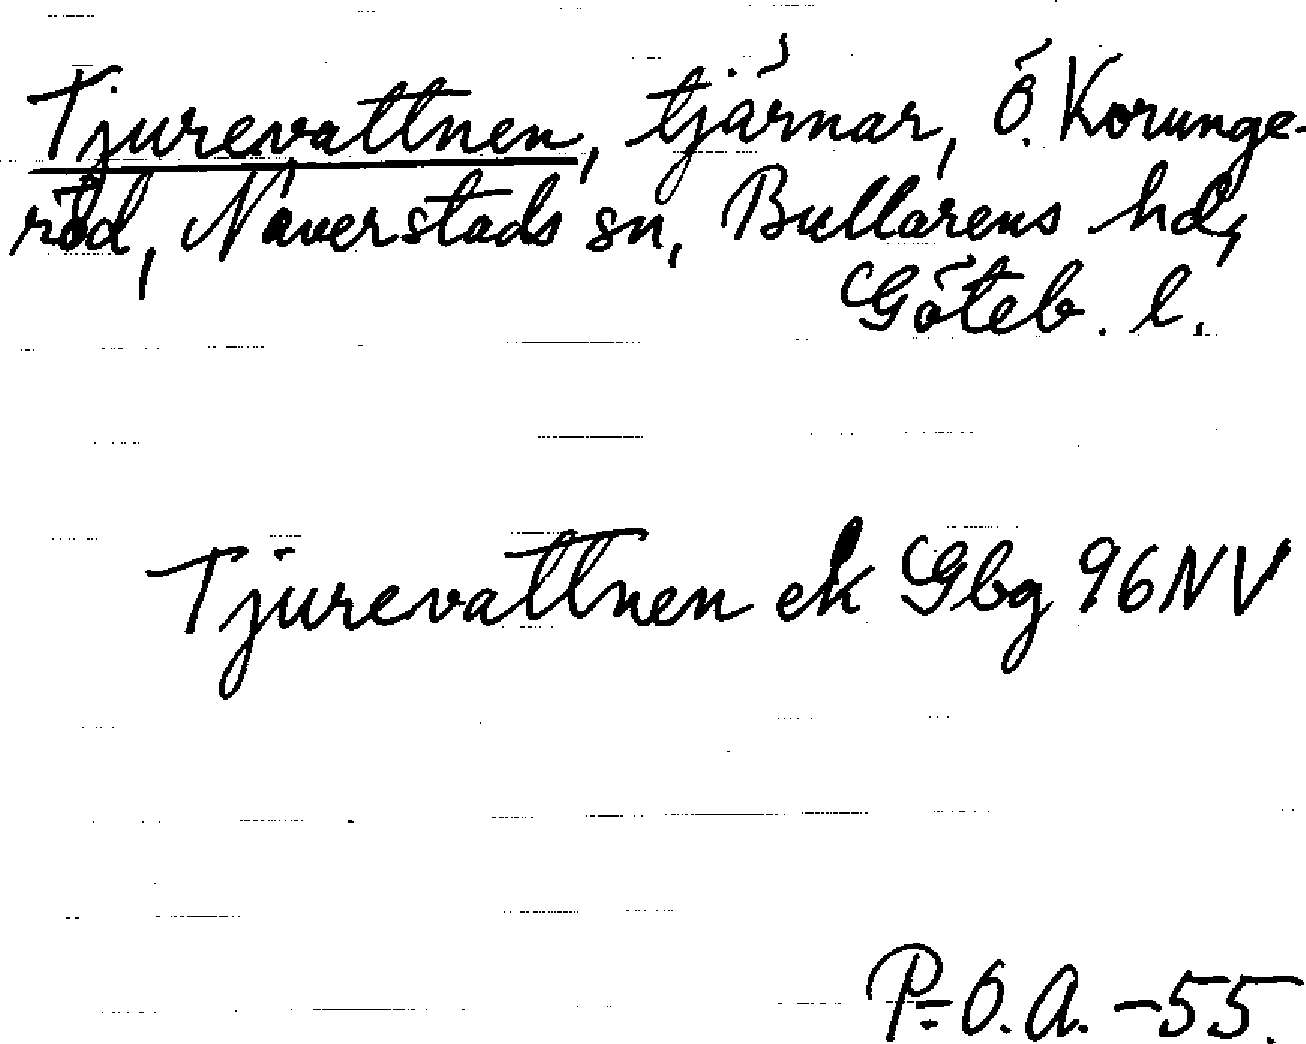 Tjurevattnen, tjärnar, Ö. Korunge-
röd, Naverstads sn, Bullarens hd,
Göteb. l.
Tjurevattnen ek Gbg 96NV
P-O.A. -55.